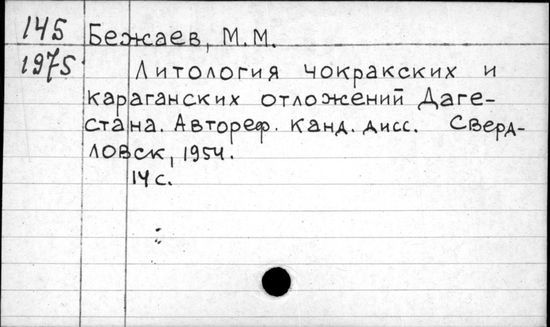 145 Бежаев, М.М.
1975 Литология чокракских и
караганских отложений Даге-
стана. Автореф. канд. дисс. Сверд-
ловск, 1954.
14 с.